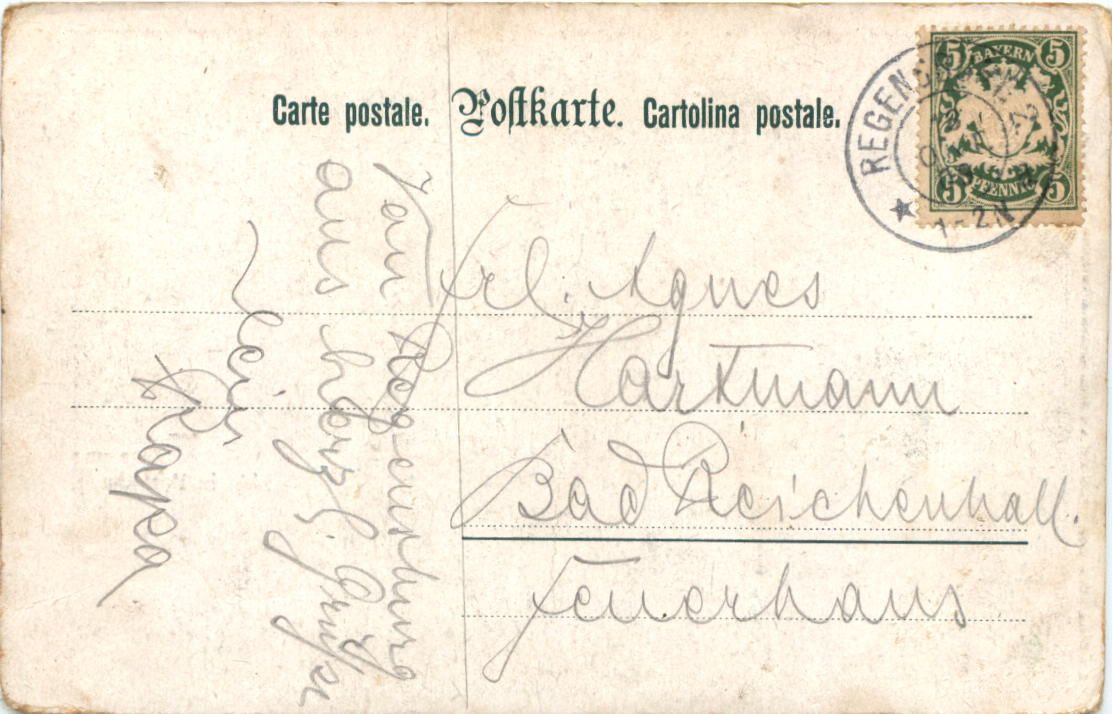 Carte postale. Postkarte. Cartolina postale.
5 BAYERN 5
5 PFENNIG 5
REGENSBURG 2
1-2N
Frl. Agnes
Hartmann
Bad Reichenhall.
Feuerhaus
Von Regensburg
aus herzl. Grüße
Dein
Papa